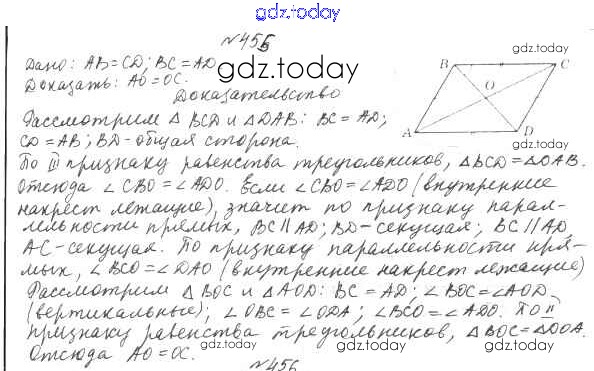 gdz.today
№455
Дано: AB=CD; BC=AD
gdz.today
Доказать: AO=OC.
gdz.today
Доказательство
B C
O
A D
Рассмотрим △ BCD и △DAB: BC=AD;
CD=AB; BD-общая сторона.
gdz.today
По III признаку равенства треугольников, △BCD=△DAB.
Отсюда ∠CBO=∠ADO. Если ∠CBO=∠ADO (внутренние
накрест лежащие), значит по признаку парал-
лельности прямых, BC∥AD; BD-секущая; BC∥AD,
AC-секущая. По признаку параллельности пря-
мых, ∠BCO=∠DAO (внутренние накрест лежащие)
Рассмотрим △ BOC и △AOD: BC=AD; ∠BOC=∠AOD
gdz.today
(вертикальные); ∠OBC=∠ODA; ∠BCO=∠ADO. По II
признаку равенства треугольников, △BOC=△DOA.
Отсюда AO=OC.
gdz.today
№456
gdz.today